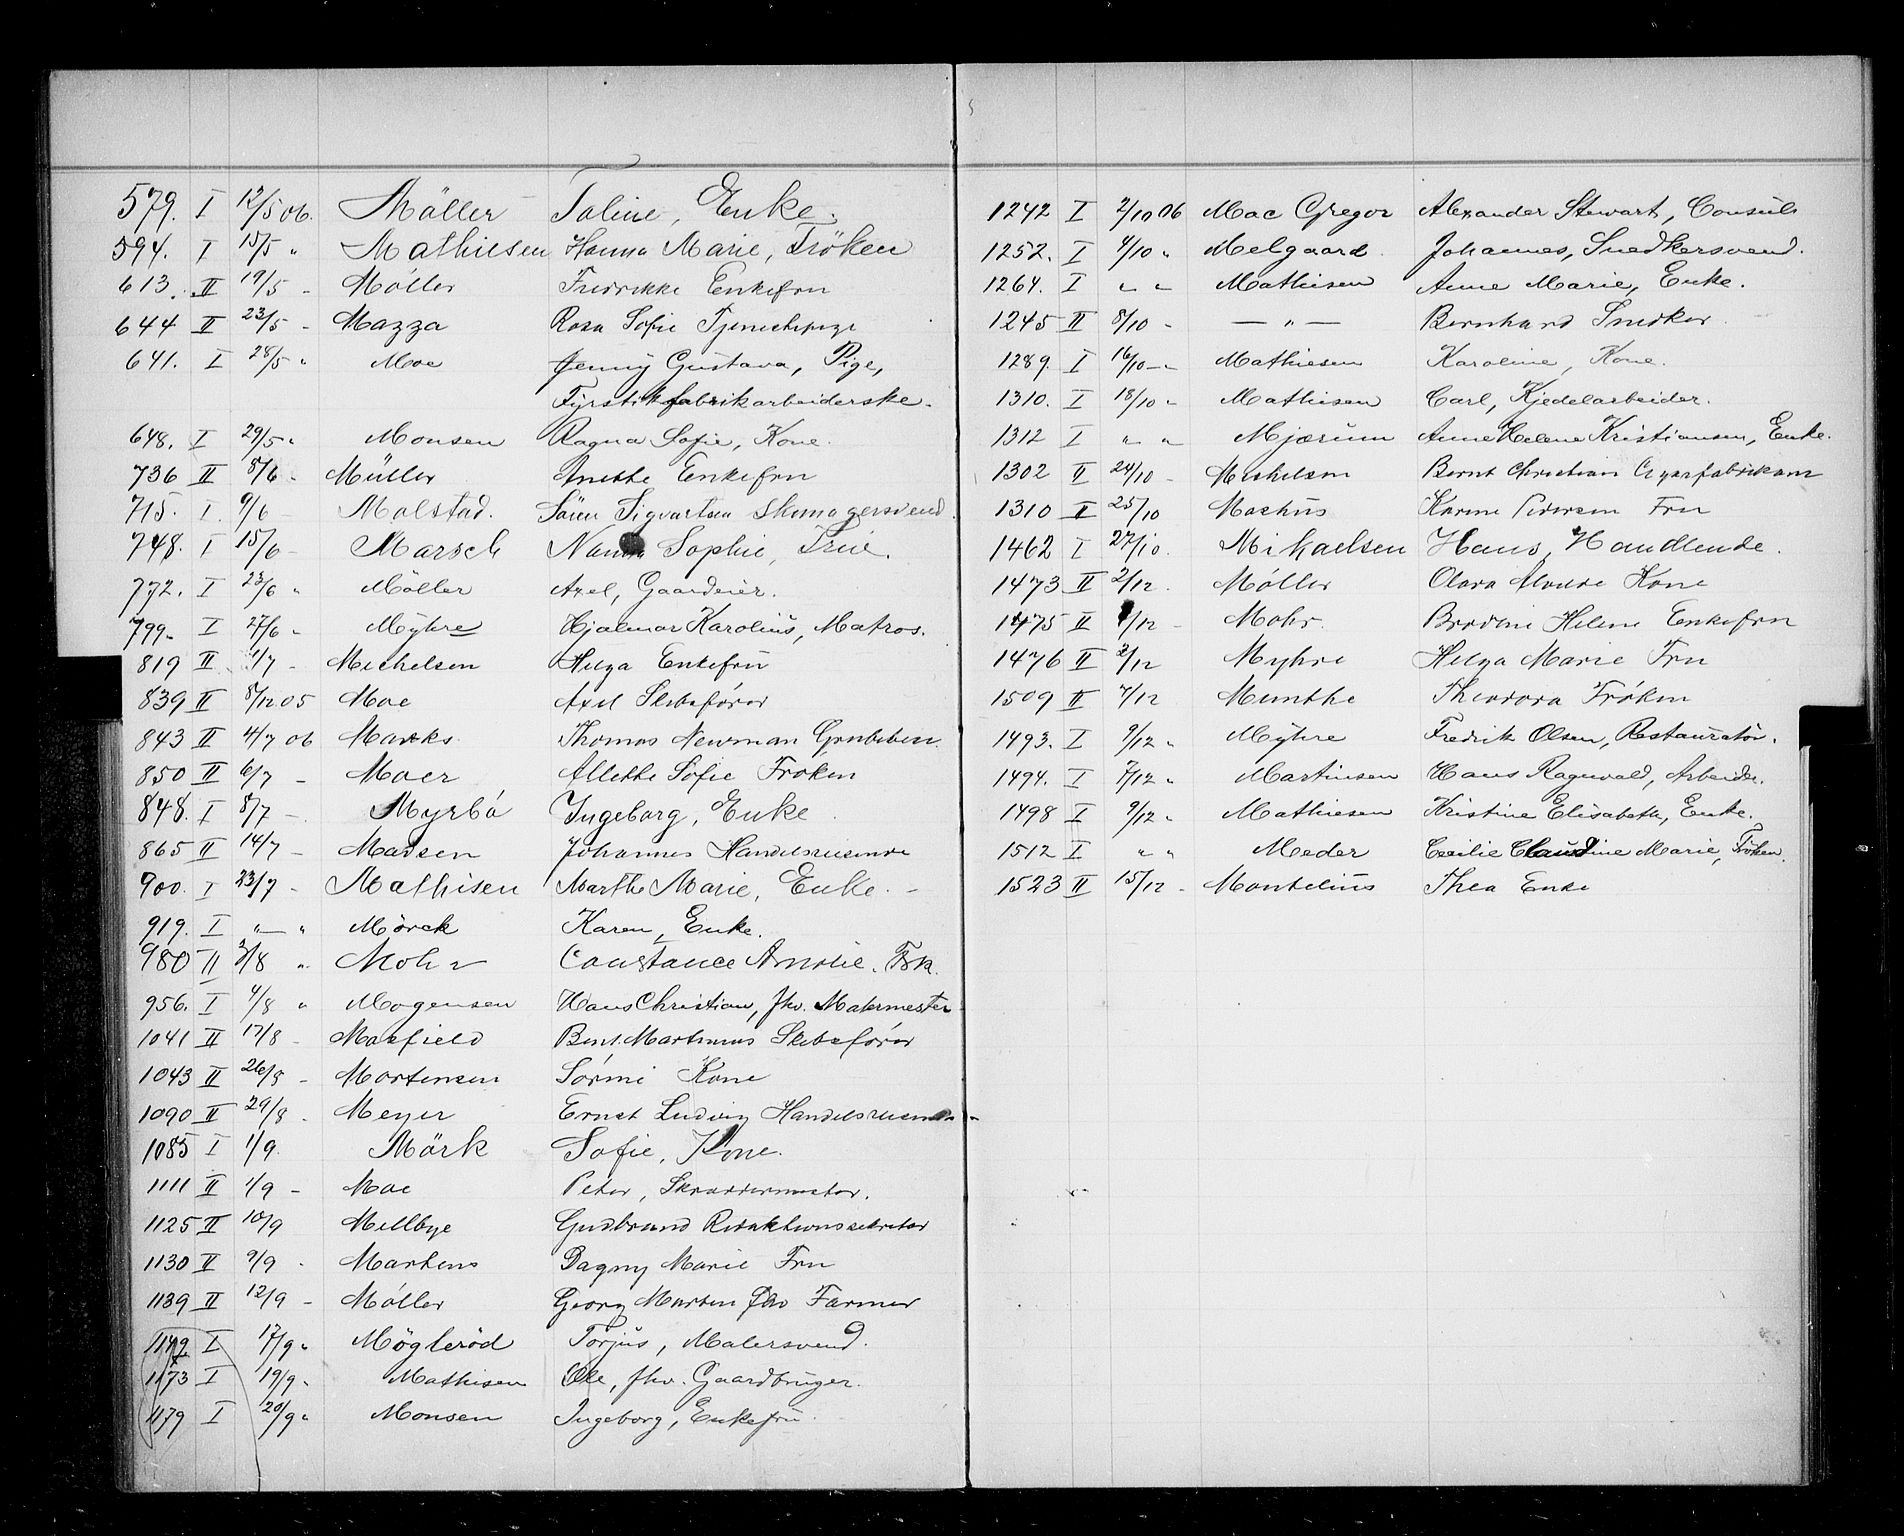 579. I 12/5 06. Möller Taline, Enke.
594. I 15/5 " Mathiesen Hanna Marie, Fröken
613. II 19/5 - Møller Fredrikke Enkefru
644 II 23/5 - Mazza Rosa Sofie Tjenestepige
641. I 28/5 " Moe Jenny Gustava, Pige,
Fyrstikfabrikarbeiderske.
648. I 29/5 " Monsen Ragna Sofie, Kone.
736 II 8/6 - Müller Anette Enkefru
715. I. 9/6 - Molstad. Sören Sigvartsen Skomagersvend.
748. I 15/6 - Marsch Nanna Sophie, Frue.
772. I 23/6 " Möller Axel, Gaardeier.
799. I 27/6 " Myhre Hjalmar Karolius, Matros.
819 II 1/7 - Michelsen Helga Enkefru
839 II 8/12 05 Moe Axel Skibsfører
843 II 4/7 06 Marks Thomas Newman
850 II 6/7 - Moer Allette Sofie Frøken
848. I 8/7 - Myrbö Ingeborg, Enke.
865 II 14/7 - Madsen Johannes Handelsreisende
900. I 23/7 - Mathisen Marthe Marie, Enke. -
919. I " " Mørck Karen, Enke.
980 II 3/8 " Mohr Constance Amalie. Frk.
956. I 4/8 " Mogensen Hans Christian, fhv. Malermester
1041 II 17/8 - Maxfield Bent Martinius Skibsfører
1043 II 26/8 - Mortensen Sørine Kone
1090 II 29/8 - Meyer Ernst Ludvig Handelsreisende
1085 I 1/9. Mörk Sofie, Kone.
1111 II 1/9 - Moe Peter, Skræddermester.
1125 II 10/9 Mellbye Gudbrand Redaktionssekretær
1130 II 9/9 - Martens Dagny Marie Fru
1139 II 12/9 - Møller Georg Morten fhv Farmer
1149 I 17/9 " Møglerød Torjus, Malersvend.
1173 I 19/9 " Mathisen Ole, fhv. Gaardbruger.
1179 I 20/9 " Monsen Ingeborg, Enkefru.
1242 I 2/10 06 Mac Gregor Alexander Stewart, Consul
1252. I 4/10 " Melgaard. Johannes, Snedkersvend.
1264. I " " Mathisen Anne Marie, Enke.
1245 II 8/10 - — " — Bernhard Snedker
1289. I 16/10 - " Mathiesen Karoline, Kone.
1310. I 18/10 " Mathisen Carl, Kjedelarbeider.
1312 I " " Mjærum Anne Helene Kristiansen, Enke.
1302 II 24/10 - Michelsen Bernt Christian Cigarfabrikant
1310 II 25/10 Mashus Karine Pedersen Fru
1462 I 27/10. Mikaelsen Hans, Handlende.
1473 II 2/12. Møller Olava Kone
1475 II 1/12 - Mohr. Helene Enkefru
1476 II 2/12 Myhre Helga Marie Fru
1509 II 7/12 Munthe Theodora Frøken
1493. I 9/12 " Myhre Fredrik Olsen, Restauratør.
1494. I 7/12 " Martinsen Hans Ragnvald, Arbeider.
1498 I 9/12 " Mathiesen Kristine Elisabeth, Enke.
1512 I " " Meder Cecilie Claudine Marie, Frøken.
1523 II 15/12 - Montelius Thea Enke